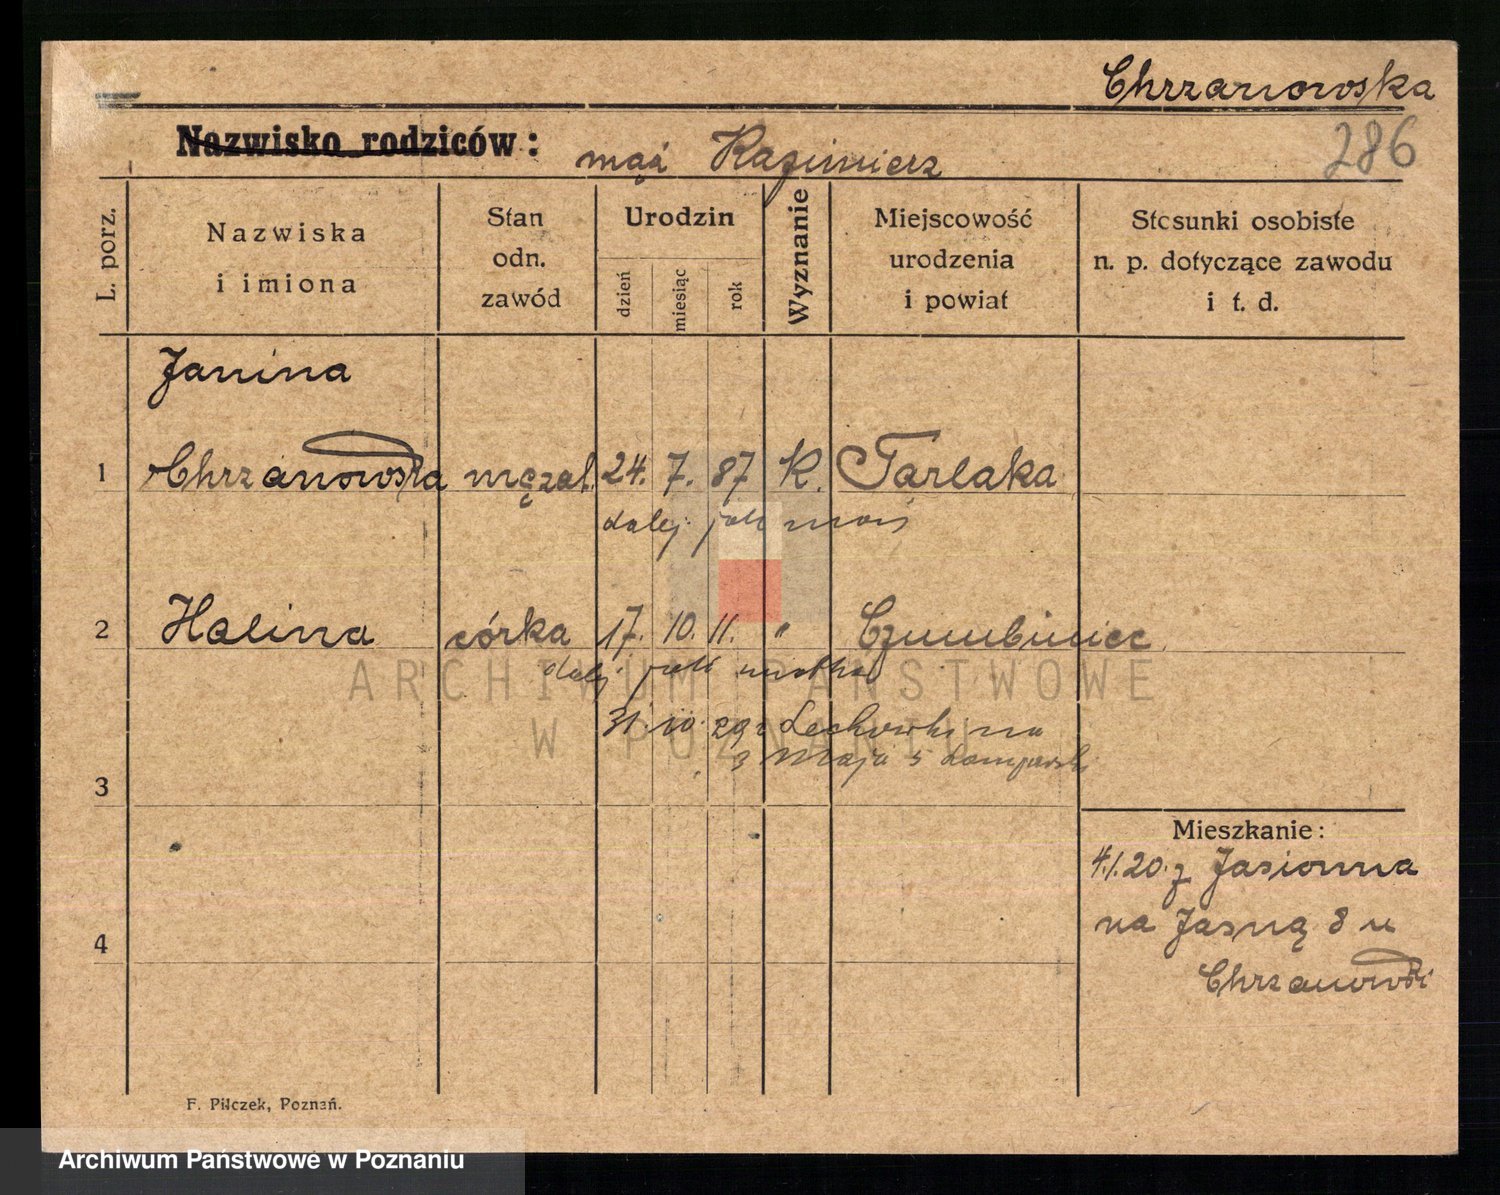 Chrzanowska
Nazwisko rodziców:
mąż Kazimierz
286
L. porz.
Nazwiska
i imiona
Stan
odn.
zawód
Urodzin
dzień
miesiąc
rok
Wyznanie
Miejscowość
urodzenia
i powiat
Stosunki osobiste
n. p. dotyczące zawodu
i t. d.
Janina
1 Chrzanowska mężat. 24. 7. 87 K. Tarlaka
dalej jak mąż
2 Halina córka 17. 10. 11. "
dalej jak matka
31. 10. 29 na
3 Maja 5
3
Mieszkanie:
4.1.20. z Jasionna
na Jasną 8 u
Chrzanowski
4
F. Pilczek, Poznań.
ARCHIWUM PAŃSTWOWE
W POZNANIU
Archiwum Państwowe w Poznaniu